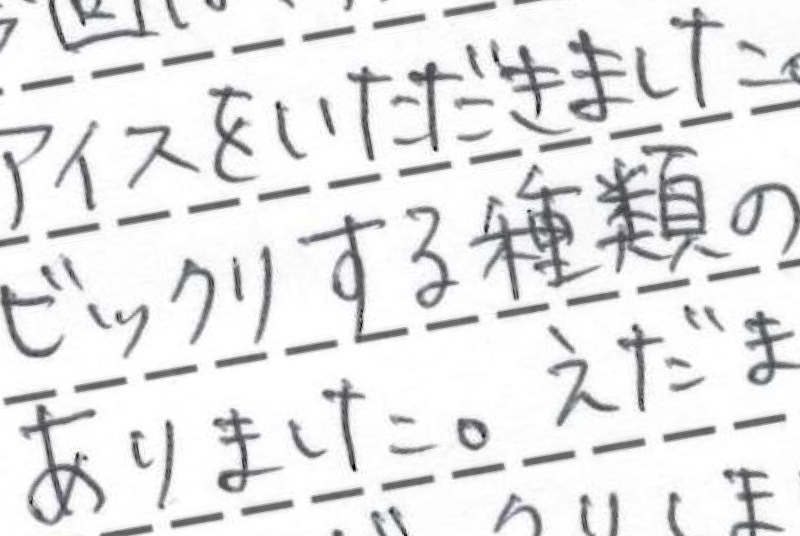 今回は
アイスをいただきました。
ビックリする種類の
ありました。えだま
ックリしま